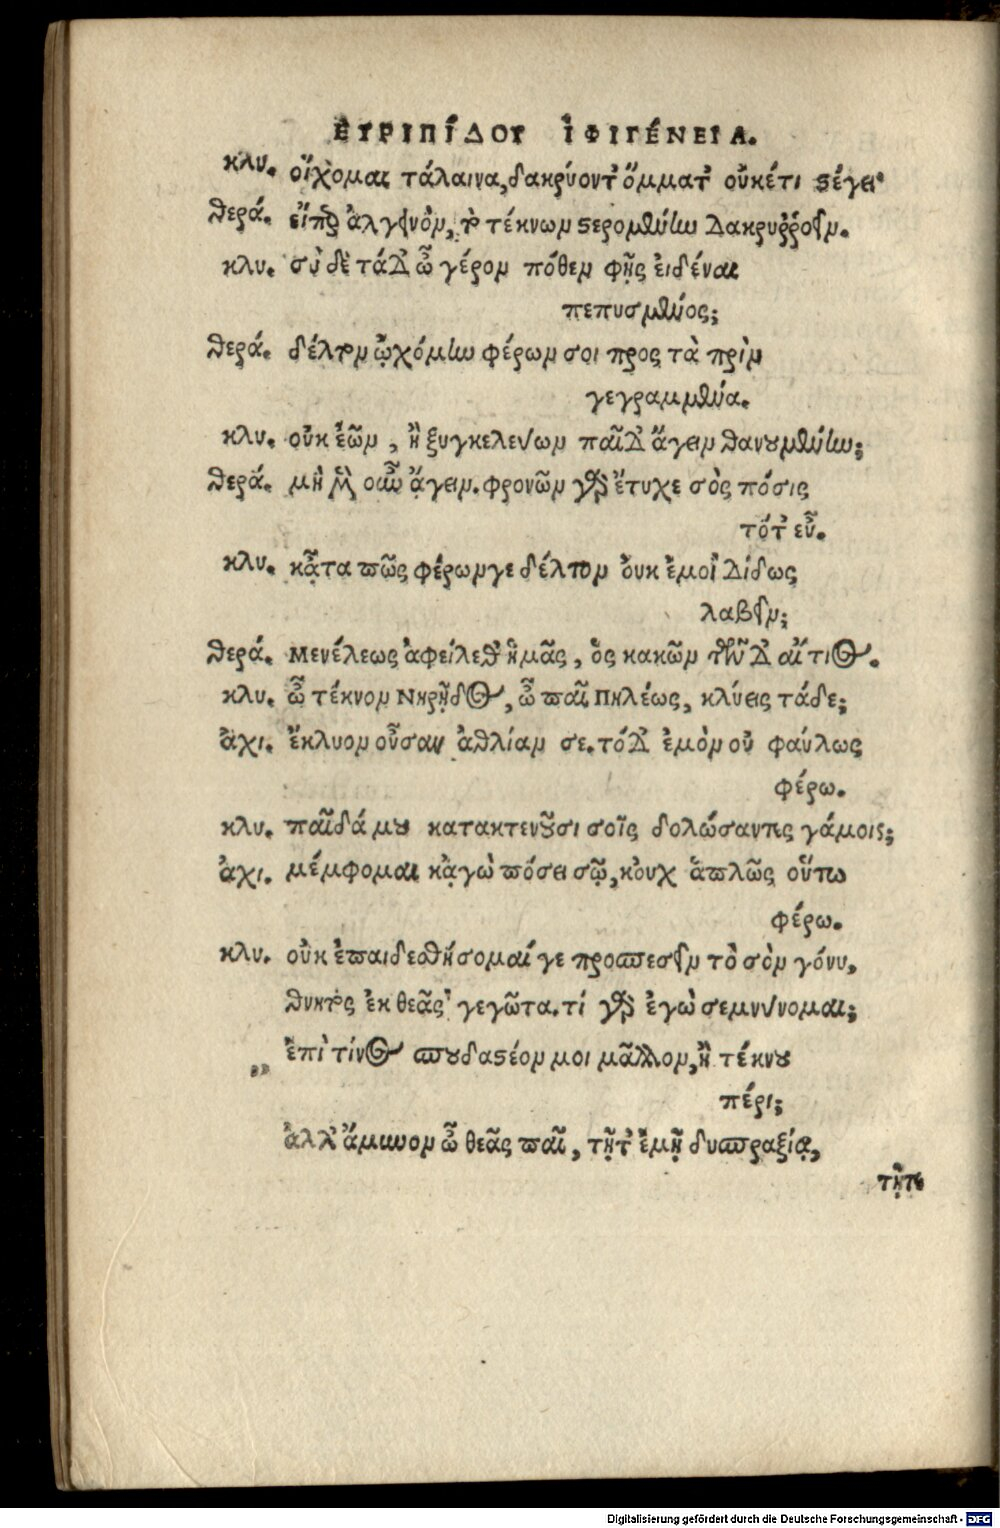 ΕΥΡΙΠΊΔΟΥ ἸΦΙΓΈΝΕΙΑ.
κλυ. οἴχομαι τάλαινα, δακρύοντ' ὄμματ' οὐκέτι στέγει·
θερά. εἴπερ ἀλγεινὸν, τὸ τέκνων στερομένην δακρυῤῥοεῖν.
κλυ. σὺ δὲ τάδ' ὦ γέρον πόθεν φῂς εἰδέναι
πεπυσμένος;
θερά. δέλτον ᾠχόμην φέρων σοι προς τὰ πρὶν
γεγραμμένα.
κλυ. οὐκ ἐῶν, ἢ ξυγκελεύων παῖδ' ἄγειν θανουμένην;
θερά. μὴ μὲν οὖν ἄγειν. φρονῶν γὰρ ἔτυχε σὸς πόσις
τότ' εὖ.
κλυ. κᾆτα πῶς φέρων γε δέλτον οὐκ ἐμοὶ δίδως
λαβεῖν;
θερά. Μενέλεως ἀφείλεθ' ἡμᾶς, ὃς κακῶν τῶνδ' αἴτιος.
κλυ. ὦ τέκνον Νηρῇδος, ὦ παῖ Πηλέως, κλύεις τάδε;
ἀχι. ἔκλυον οὖσαν ἀθλίαν σε. τόδ' ἐμὸν οὐ φαύλως
φέρω.
κλυ. παῖδά μου κατακτενοῦσι σοῖς δολώσαντες γάμοις;
ἀχι. μέμφομαι κᾀγὼ πόσει σῷ, κοὐχ ἁπλῶς οὕτω
φέρω.
κλυ. οὐκ ἐπαιδεσθήσομαί γε προσπεσεῖν τὸ σὸν γόνυ,
θνητὸς ἐκ θεᾶς γεγῶτα. τί γὰρ ἐγὼ σεμνύνομαι;
„ ἐπὶ τίνος σπουδαστέον μοι μᾶλλον, ἢ τέκνου
πέρι;
ἀλλ' ἄμυνον ὦ θεᾶς παῖ, τῇ τ' ἐμῇ δυσπραξίᾳ,
τῇτε